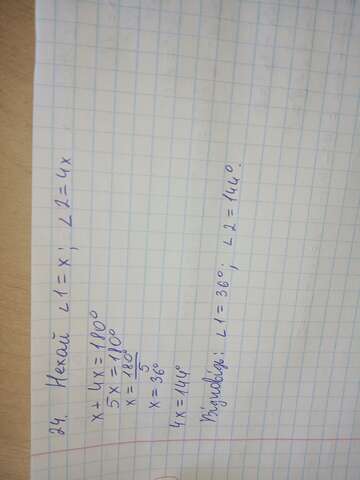 24. Нехай ∠1=x; ∠2=4x
x+4x=180°
5x=180°
x=180°/5
x=36°
4x=144°
Відповідь: ∠1=36°; ∠2=144°.